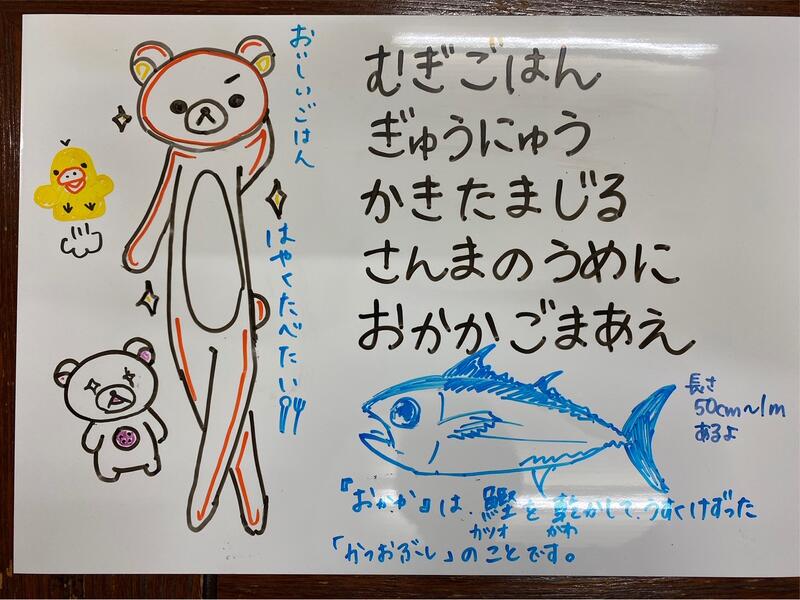 おいしいごはん
はやくたべたい
むぎごはん
ぎゅうにゅう
かきたまじる
さんまのうめに
おかかごまあえ
長さ
50cm~1m
あるよ
『おかか』は、鰹を乾かして、うすくけずった
カツオ かわ
「かつおぶし」のことです。